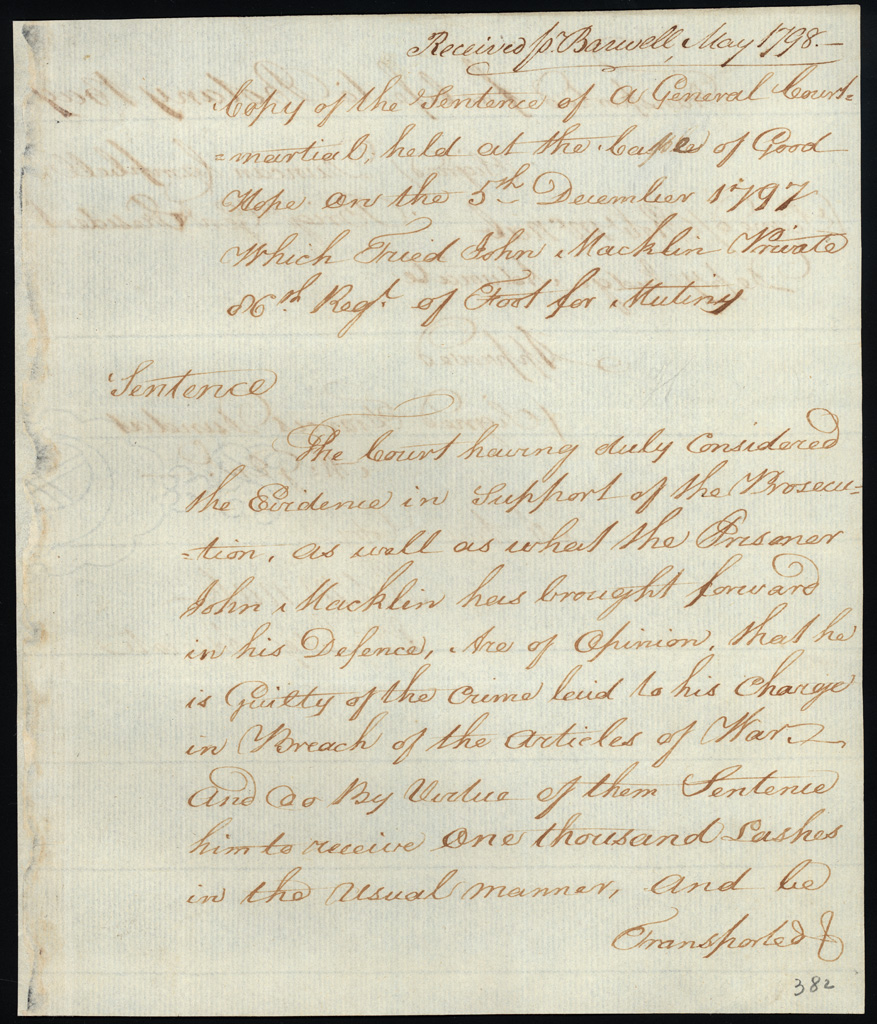 Received p. Barwell, May 1798.—
Copy of the Sentence of a General Court=
=martial, held at the Cape of Good
Hope on the 5th December 1797
Which Tried John Macklin Private
86th Regt. of Foot for Mutiny
Sentence
The Court having duly Considered
the Evidence in Support of the Prosecu=
=tion, as well as what the Prisoner
John Macklin has brought forward
in his Defence, Are of Opinion, that he
is Guilty of the Crime laid to his Charge
in Breach of the Articles of War
And do By Virtue of them Sentence
him to receive One thousand Lashes
in the Usual manner, and be
Transported
382